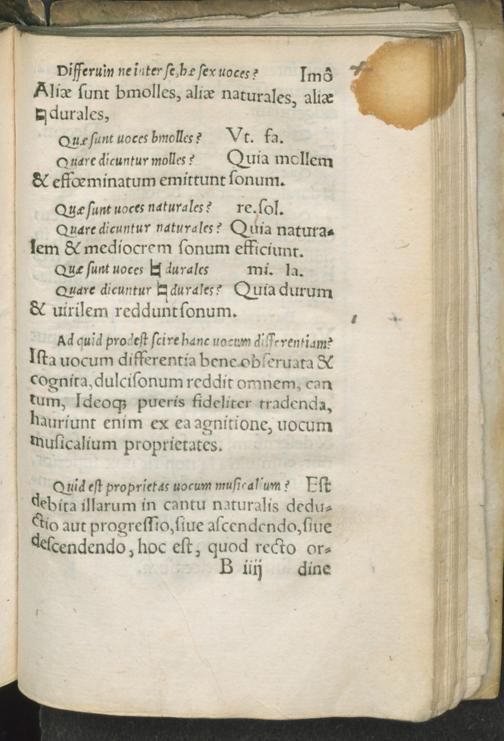 Differuñ ne inter se, hæ sex uoces? Imô
Aliæ sunt bmolles, aliæ naturales, aliæ
♮durales,
Quæ sunt uoces bmolles? Vt. fa.
Quare dicuntur molles? Quia mollem
& effœminatum emittunt sonum.
Quæ sunt uoces naturales? re. sol.
Quare dicuntur naturales? Quia natura-
lem & mediocrem sonum efficiunt.
Quæ sunt uoces ♮ durales mi. la.
Quare dicuntur ♮ durales? Quia durum
& uirilem reddunt sonum.
Ad quid prodest scire hanc uocum differentiam?
Ista uocum differentia bene obseruata &
cognita, dulcisonum reddit omnem, can
tum, Ideoqꝫ pueris fideliter tradenda,
hauriunt enim ex ea agnitione, uocum
musicalium proprietates.
Quid est proprietas uocum musicalium? Est
debita illarum in cantu naturalis dedu-
ctio aut progressio, siue ascendendo, siue
descendendo, hoc est, quod recto or-
B iiij dine